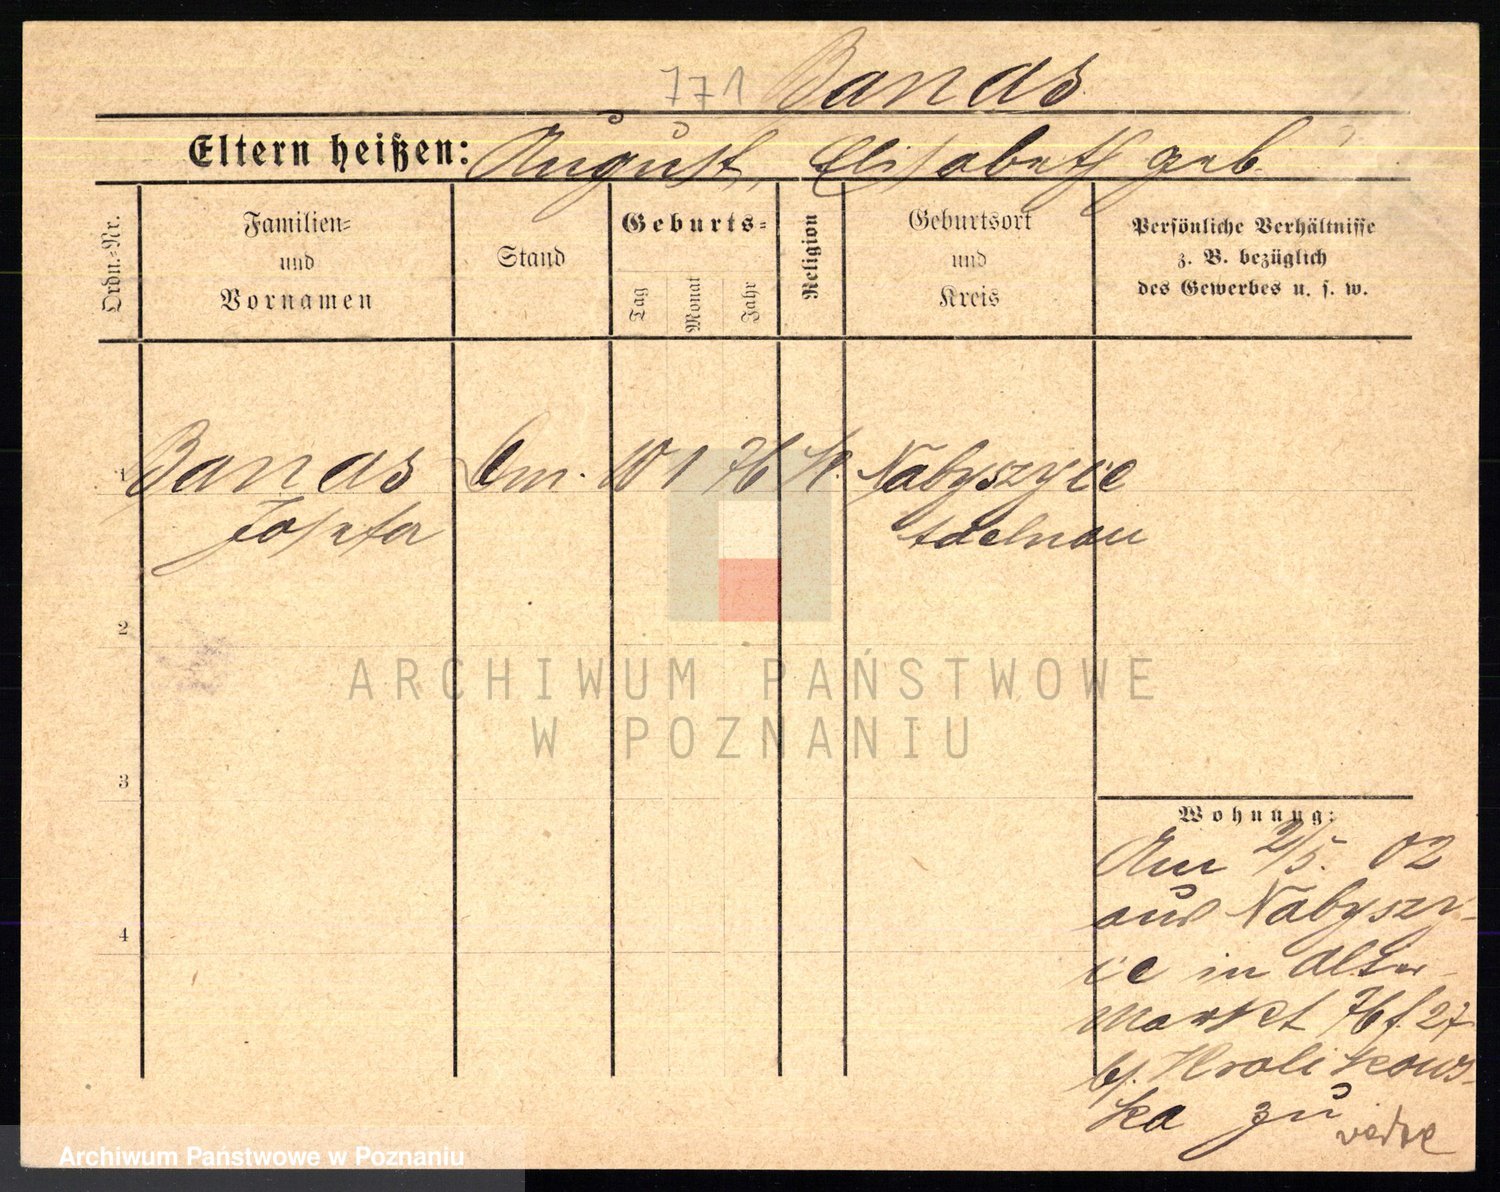 771 Banas
Eltern heißen: August, Elisabeth geb.
Ordn.-Nr.
Familien-
und
Vornamen
Stand
Geburts-
Tag
Monat
Jahr
Religion
Geburtsort
und
Kreis
Persönliche Verhältnisse
z. B. bezüglich
des Gewerbes u. s. w.
1 Banas 10 1 76 k. Nabyszyce
Josefa Adelnau
2
3
4
Wohnung:
Am 2/5. 02
aus Nabyszy-
ce in Alter
Markt 76 f. 27
bj. Krolikows-
ka zu
ARCHIWUM PAŃSTWOWE
W POZNANIU
Archiwum Państwowe w Poznaniu